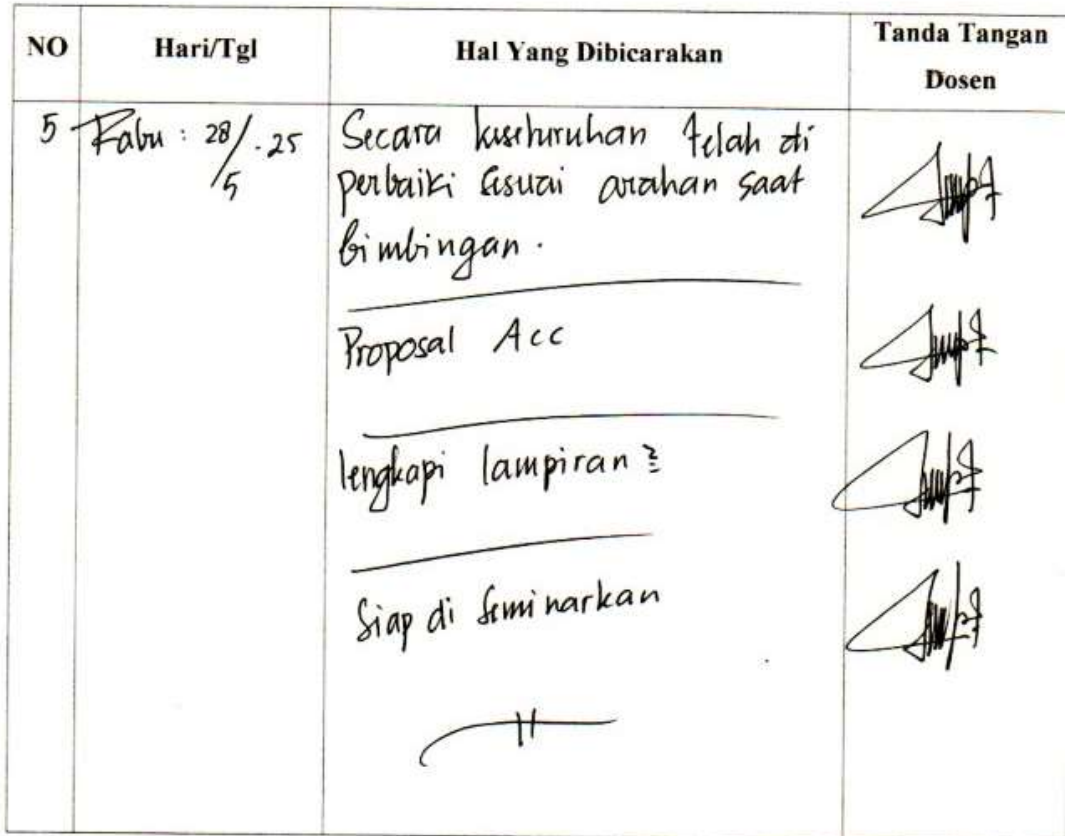 NO Hari/Tgl Hal Yang Dibicarakan Tanda Tangan
Dosen
5 Rabu : 28/5.25 Secara keseluruhan telah di
perbaiki sesuai arahan saat
bimbingan.
Proposal Acc
lengkapi lampiran²
Siap di seminarkan